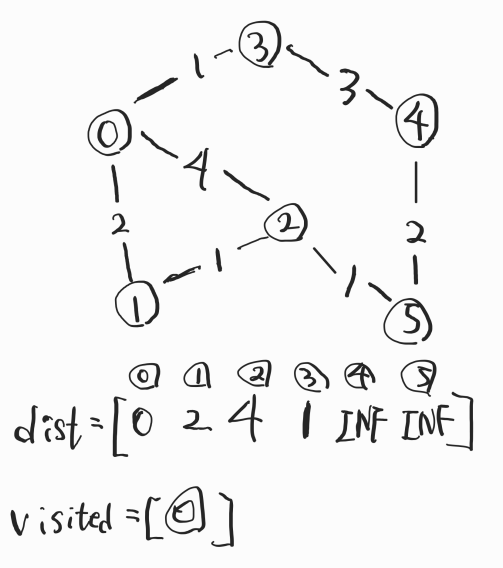 1 ③
3
⓪ ④
4
2 ② 2
1 1
① ⑤
⓪ ① ② ③ ④ ⑤
dist=[0 2 4 1 INF INF]
visited=[⓪]